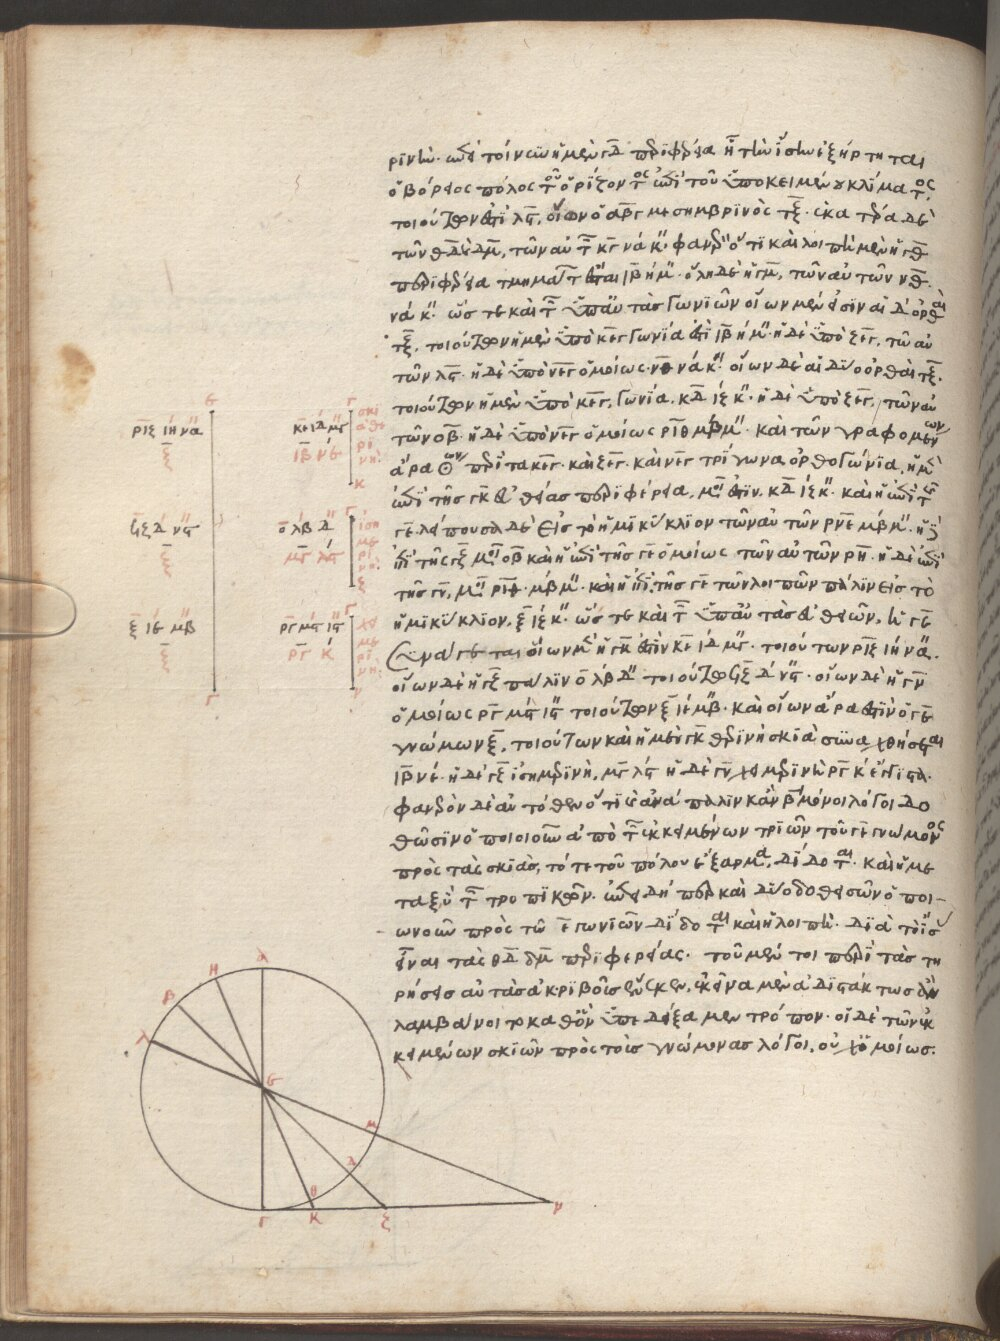 ρινὴν· ἐπεὶ τοίνυν ἡ μὲν γδ περιφέρεια ἴση τῇ ἣν ἐξήρτηται
ὁ βόρειος πόλος τοῦ ὁρίζοντος ἐπὶ τοῦ ὑποκειμένου κλίματος,
τοιούτων ἐστὶ λϛ, οἵων ὁ αβγ μεσημβρινὸς τξ. ἑκατέρα δὲ
τῶν θδ δμ, τῶν αὐτῶν κγ νά κ̋. φανερὸν ὅτι καὶ λοιπὴ μὲν ἡ γθ
περιφέρεια τμημάτων ἔσται ιβ ή μ̋. ὅλη δὲ ἡ γμ, τῶν αὐτῶν νθ.
νά κ̋. ὥστε καὶ τῶν ὑπ' αὐτὰς γωνιῶν οἵων μέν εἰσιν αἱ δ ὀρθαὶ
τξ, τοιούτων ἡ μὲν ὑπὸ κεγ γωνία ἐστὶ ιβ ή μ̋. ἡ δὲ ὑπὸ ξεγ, τῶν αὐ
τῶν λϛ. ἡ δὲ ὑπὸ νεγ ὁμοίως νθ νά κ̋. οἵων δὲ αἱ δύο ὀρθαὶ τξ.
τοιούτων ἡ μὲν ὑπὸ κεγ, γωνία. κδ ιζ κ̋. ἡ δὲ ὑπὸ ξεγ, τῶν αὐ
τῶν οβ. ἡ δὲ ὑπὸ νεγ ὁμοίως ριθ μβ μ̋. καὶ τῶν γραφομένων
ἄρα κύκλων περὶ τὰ κεγ. καὶ ξεγ. καὶ νεγ τρίγωνα ὀρθογώνια, ἡ μὲν
ἐπὶ τῆς γκ εὐθείας περιφέρεια, μοιρῶν ἐστιν. κδ ιζ κ̋. καὶ ἡ ἐπὶ τῆς
γε λείπουσα δὲ εἰς τὸ ἡμικύκλιον τῶν αὐτῶν ρνε μβ μ̋. ἡ δὲ
ἐπὶ τῆς γξ μοιρῶν οβ καὶ ἡ ἐπὶ τῆς γε ὁμοίως τῶν αὐτῶν ρη. ἡ δὲ ἐπὶ
τῆς γν, μοιρῶν ριθ. μβ μ̋. καὶ ἡ ἐπὶ τῆς γε τῶν λοιπῶν πάλιν εἰς τὸ
ἡμικύκλιον, ξ ιζ κ̋. ὥστε καὶ τῶν ὑπ' αὐτὰς εὐθειῶν, ἡ γε
γίνεται οἵων μὲν ἡ γκ ἐστὶν κε ιδ μγ. τοιούτων ριξ ιή νά.
οἵων δὲ ἡ γξ πάλιν ο λβ δ̋ τοιούτων ϟξ δ νϛ. οἵων δὲ ἡ γν
ὁμοίως ργ μϛ ιϛ τοιούτων ξ ιέ μβ. καὶ οἵων ἄρα ἐστὶν ὁ γε
γνώμων ξ, τοιούτων καὶ ἡ μὲν γκ θερινὴ σκιὰ συναχθήσεται
ιβ νέ. ἡ δὲ γξ ἰσημερινὴ, μγ λϛ ἡ δὲ γν χειμερινὴ ργ κ ἔγγιστα.
φανερὸν δὲ αὐτόθεν ὅτι κἀνάπαλιν κἂν β μόνοι λόγοι δο
θῶσιν ὁποιοιοῦν ἀπὸ τῶν ἐκκειμένων τριῶν τοῦ γε γνώμονος
πρὸς τὰς σκιὰς, τό τε τοῦ πόλου ἔξαρμα, δίδοται. καὶ ἡ με
ταξὺ τῶν τροπικῶν. ἐπειδήπερ καὶ δύο δοθεισῶν ὁποι-
ωνοῦν πρὸς τῷ ε γωνιῶν δίδοται καὶ ἡ λοιπὴ. διὰ τὸ ἴσας
εἶναι τὰς θδ δμ περιφερείας. τοῦ μέν τοι περὶ τὰς τη
ρήσεις αὐτὰς ἀκριβοῦς ἕνεκεν, ἐκεῖνα μὲν ἀδιστάκτως ἂν
λαμβάνοιτο καθ' ὃν ὑπεδείξαμεν τρόπον. οἱ δὲ τῶν ἐκ
κειμένων σκιῶν πρὸς τοὺς γνώμονας λόγοι. οὐχ ὁμοίως.
ε
ριξ ιή νά
ξ
ϟξ δ νϛ
ξ
ξ ιε μβ
ξ
γ
γ
κε ιδ μγ
ιβ νέ
σκι
ὰ θε
ρι
νή.
κ
ο λβ δ̋
μγ λϛ
γ
ἰση
με
ρι
νή.
ξ
ργ μϛ ιϛ
ργ κ
γ
χει
με
ρι
νή.
ν
α
η
β
λ
ε
μ
δ
θ
γ
κ
ξ
ν